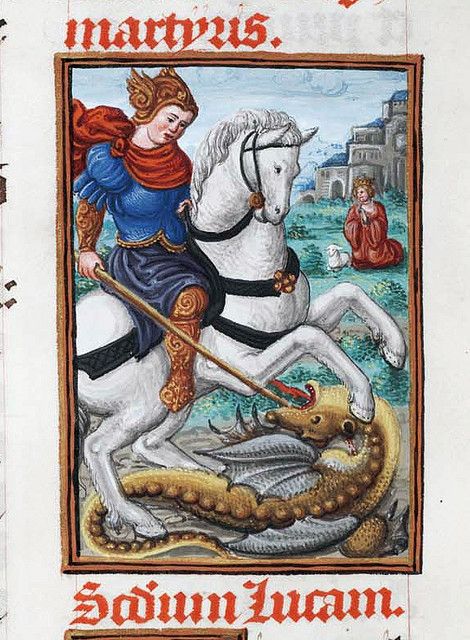 martyris.
Scdium Lucam.